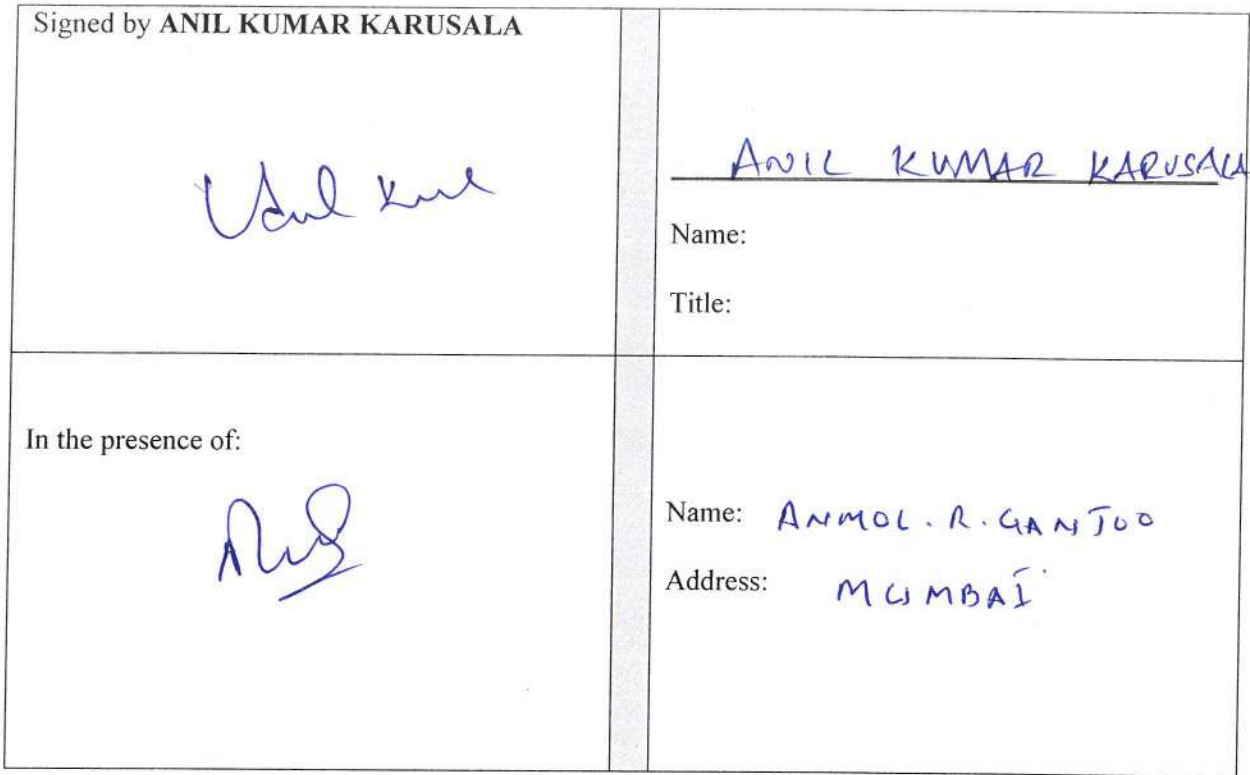 Signed by ANIL KUMAR KARUSALA
ANIL KUMAR KARUSALA
Name:
Title:
In the presence of:
Name: ANMOL . R. GANJOO
Address: MUMBAI